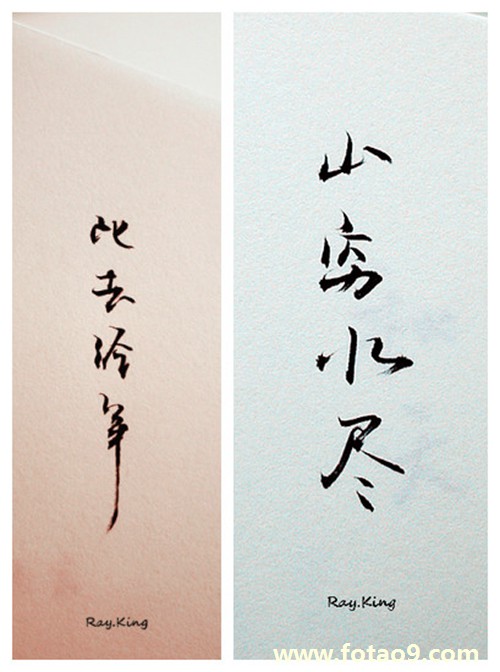 此去经年
Ray.King
山穷水尽
Ray.King
www.fotao9.com